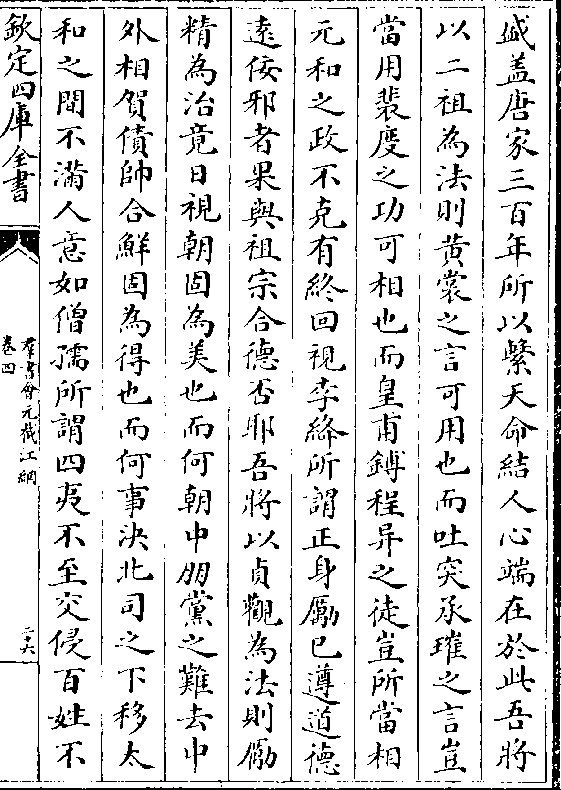 盛盖唐家三百年所以繫天命結人心端在於此吾將
以二祖為法則黄裳之言可用也而吐突承璀之言豈
當用裴度之功可相也而皇甫鎛程异之徒豈所當相
元和之政不克有終回視李絳所謂正身勵已遵道德
遠佞邪者果與祖宗合德否耶吾將以貞觀為法則勵
精為治竟日視朝固為美也而何朝中朋黨之難去中
外相賀債帥合鮮固為得也而何事決北司之下移太
和之間不滿人意如僧孺所謂四夷不至交侵百姓不
欽定四庫全書
羣書會元截江網
卷四
二十六